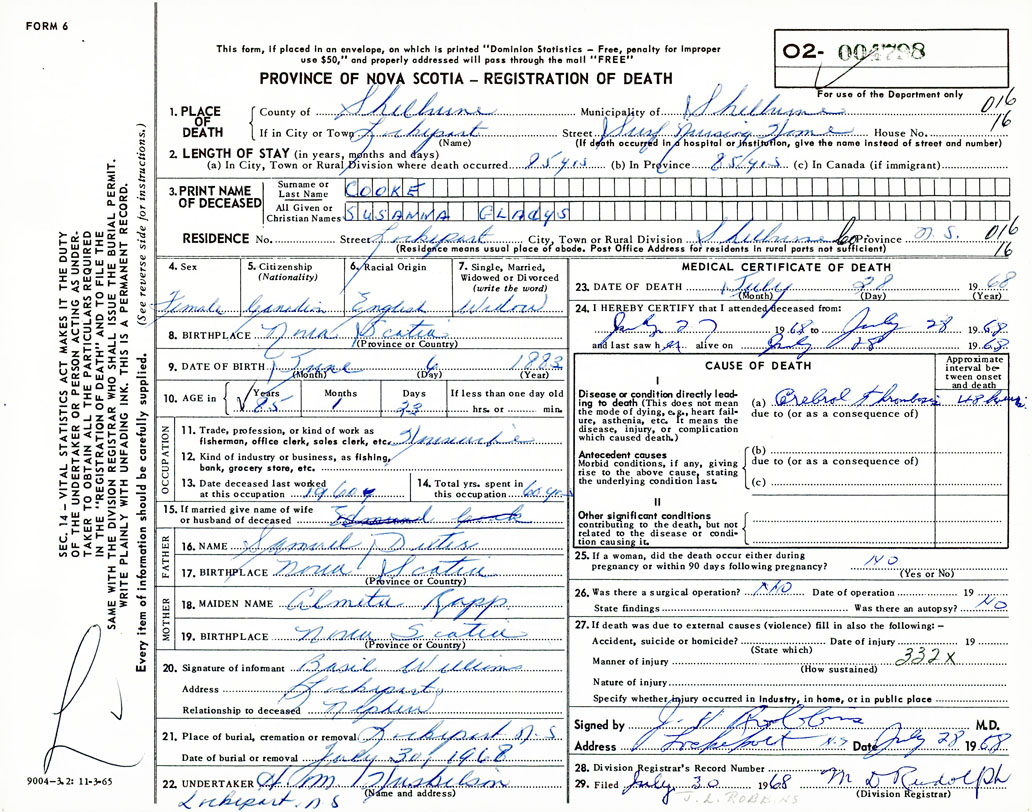 FORM 6
This form, if placed in an envelope, on which is printed "Dominion Statistics – Free, penalty for improper
use $50," and properly addressed will pass through the mail "FREE"
PROVINCE OF NOVA SCOTIA – REGISTRATION OF DEATH
02- 004798
For use of the Department only
016
16
1. PLACE OF DEATH
County of Shelburne Municipality of Shelburne
If in City or Town Lockeport Street Surf Nursing Home House No.
(Name) (If death occurred in a hospital or institution, give the name instead of street and number)
2. LENGTH OF STAY (in years, months and days)
(a) In City, Town or Rural Division where death occurred 85 yrs (b) In Province 85 yrs (c) In Canada (if immigrant)
3. PRINT NAME OF DECEASED
Surname or Last Name COOKE
All Given or Christian Names SUSANNA GLADYS
RESIDENCE No. Street Lockeport City, Town or Rural Division Shelburne Co Province N.S. 016
(Residence means usual place of abode. Post Office Address for residents in rural parts not sufficient) 16
4. Sex
Female
5. Citizenship (Nationality)
Canadian
6. Racial Origin
English
7. Single, Married, Widowed or Divorced (write the word)
Widow
8. BIRTHPLACE Nova Scotia
(Province or Country)
9. DATE OF BIRTH June 6 1883
(Month) (Day) (Year)
10. AGE in Years Months Days If less than one day old
85 1 23 hrs. or min.
OCCUPATION
11. Trade, profession, or kind of work as
fisherman, office clerk, sales clerk, etc. Housewife
12. Kind of industry or business, as fishing,
bank, grocery store, etc.
13. Date deceased last worked
at this occupation 1960
14. Total yrs. spent in
this occupation 60 yrs
15. If married give name of wife
or husband of deceased Edmund Cook
FATHER
16. NAME Samuel
17. BIRTHPLACE Nova Scotia
(Province or Country)
MOTHER
18. MAIDEN NAME Almeta Rapp
19. BIRTHPLACE Nova Scotia
(Province or Country)
20. Signature of informant Basil Williams
Address Lockeport
Relationship to deceased Nephew
21. Place of burial, cremation or removal Lockeport N.S.
Date of burial or removal July 30, 1968
22. UNDERTAKER H M
(Name and address)
Lockeport, N S
MEDICAL CERTIFICATE OF DEATH
23. DATE OF DEATH July 28 1968
(Month) (Day) (Year)
24. I HEREBY CERTIFY that I attended deceased from:
July 27 1968 to July 28 1968
and last saw her alive on July 28 1968
CAUSE OF DEATH
Approximate interval between onset and death
I
Disease or condition directly leading to death (This does not mean the mode of dying, e.g., heart failure, asthenia, etc. It means the disease, injury, or complication which caused death.)
(a) Crebral thrombosis 48 hours
due to (or as a consequence of)
Antecedent causes
Morbid conditions, if any, giving rise to the above cause, stating the underlying condition last.
(b)
due to (or as a consequence of)
(c)
II
Other significant conditions
contributing to the death, but not related to the disease or condition causing it.
25. If a woman, did the death occur either during
pregnancy or within 90 days following pregnancy? NO
(Yes or No)
26. Was there a surgical operation? NO Date of operation 19
State findings Was there an autopsy? NO
27. If death was due to external causes (violence) fill in also the following: –
Accident, suicide or homicide? Date of injury 19
(State which)
Manner of injury 332X
(How sustained)
Nature of injury
Specify whether injury occurred in Industry, in home, or in public place
Signed by J H Robbins M.D.
Address Lockeport N.S Date July 28 1968
28. Division Registrar's Record Number
29. Filed July 30 1968 M D Rudolph
(Division Registrar)
J. L. ROBBINS
SEC. 14 – VITAL STATISTICS ACT MAKES IT THE DUTY
OF THE UNDERTAKER OR PERSON ACTING AS UNDER-
TAKER TO OBTAIN ALL THE PARTICULARS REQUIRED
IN THE "REGISTRATION OF DEATH" AND TO FILE THE
SAME WITH THE DIVISION REGISTRAR WHO SHALL ISSUE THE BURIAL PERMIT.
WRITE PLAINLY WITH UNFADING INK. THIS IS A PERMANENT RECORD.
Every item of information should be carefully supplied. (See reverse side for instructions.)
9004–3.2: 11-3-65